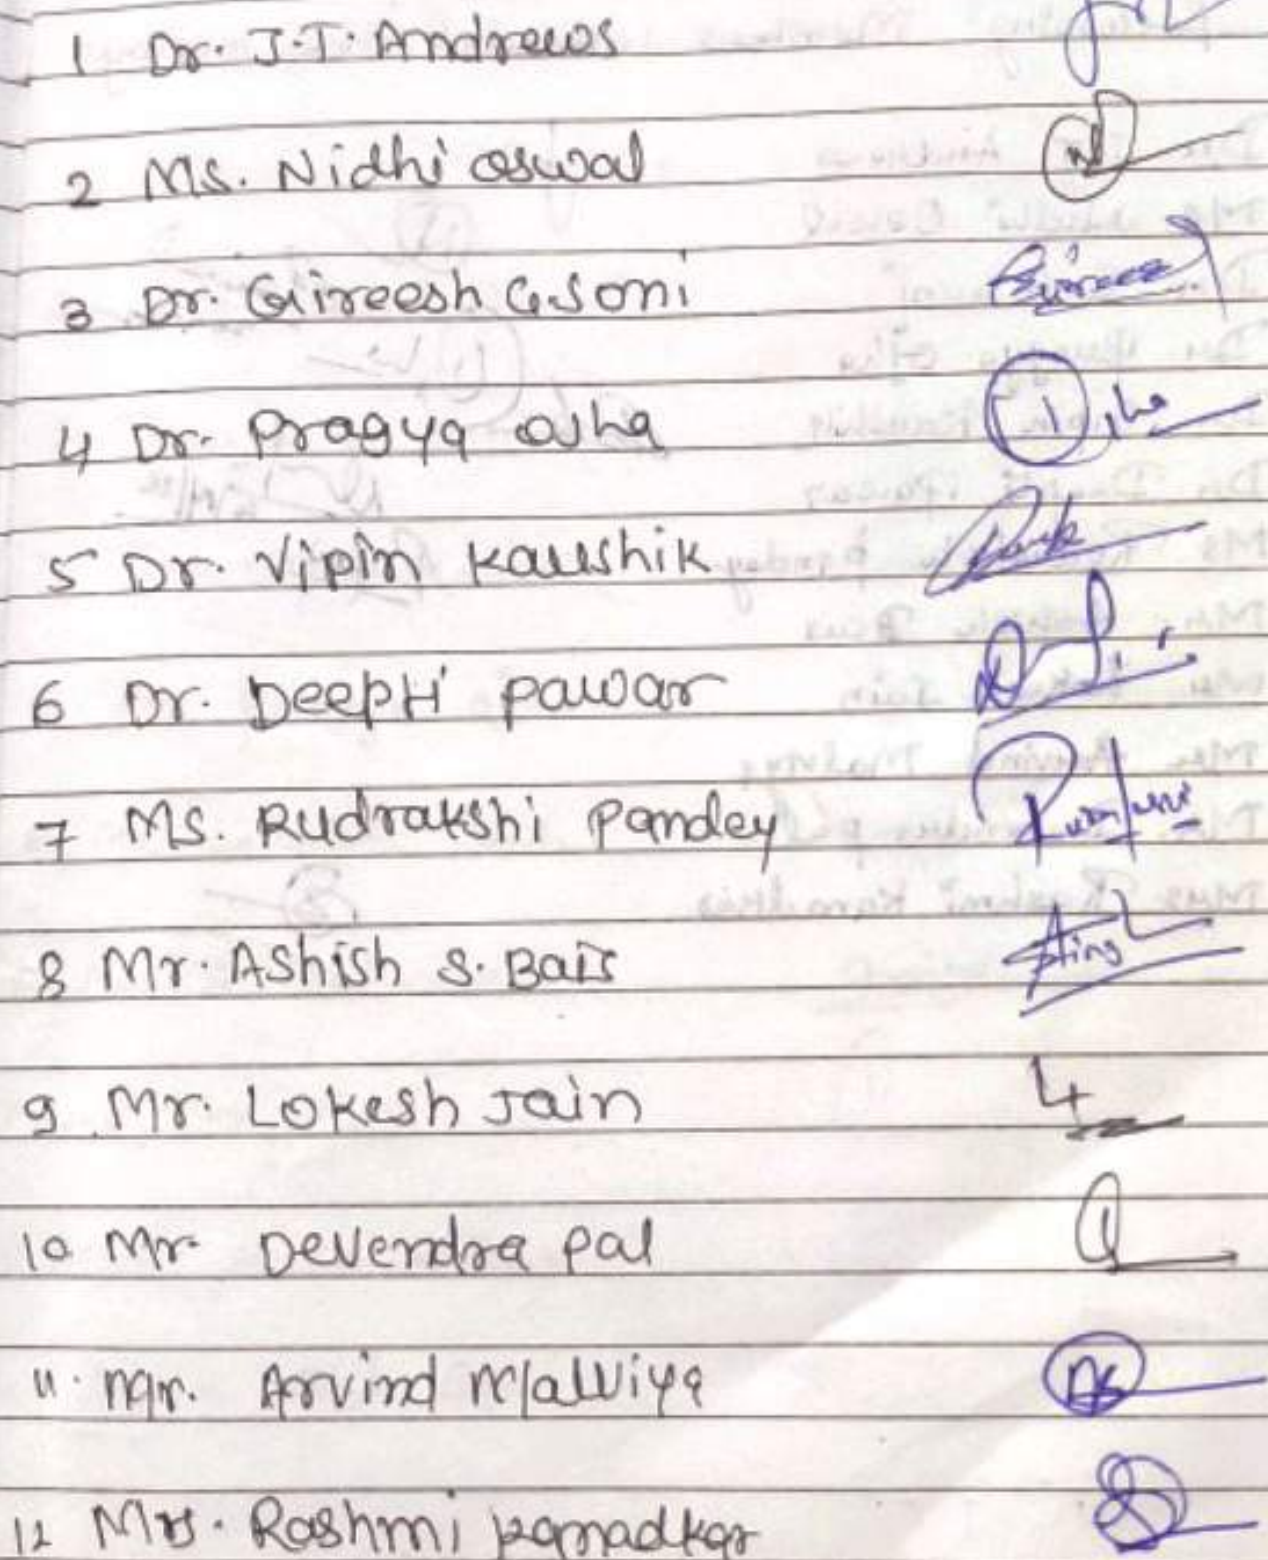 1 Dr. J.T. Andrews
2 Ms. Nidhi Oswal
3 Dr. Gireesh G. Soni
4 Dr. Pragya Ojha
5 Dr. Vipin Kaushik
6 Dr. Deepti Pawar
7 Ms. Rudrakshi Pandey
8 Mr. Ashish S. Bais
9 Mr. Lokesh Jain
10 Mr. Devendra Pal
11. Mr. Arvind Malviya
12 Mrs. Rashmi